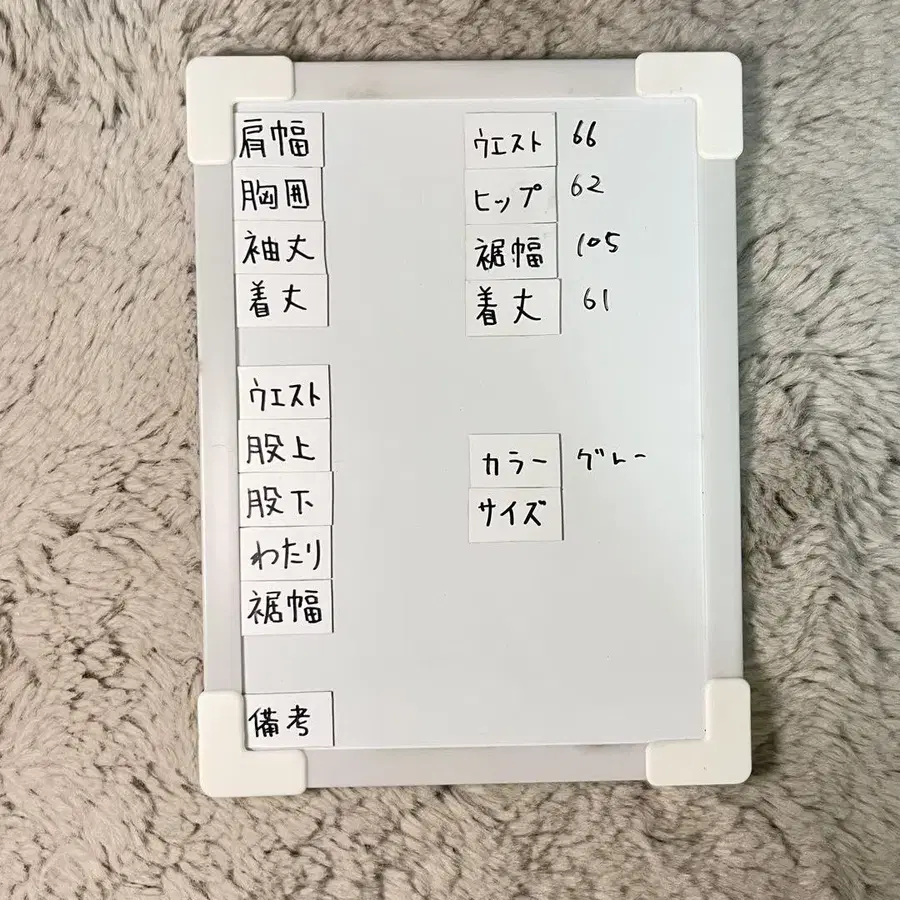 肩幅
胸囲
袖丈
着丈
ウエスト
股上
股下
わたり
裾幅
備考
ウエスト 66
ヒップ 62
裾幅 105
着丈 61
カラー グレー
サイズ